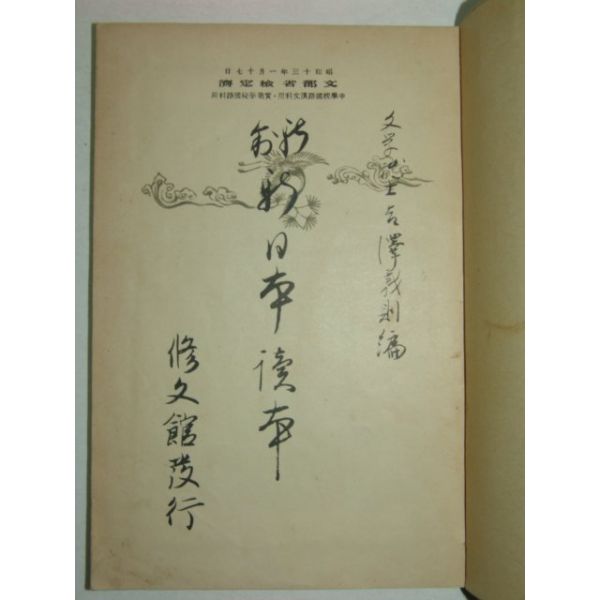 昭和十三年一月十七日
文部省檢定濟
中學校國語漢文科用・實業學校國語科用
文学博士吉澤義則編
新制
新日本读本
修文館發行